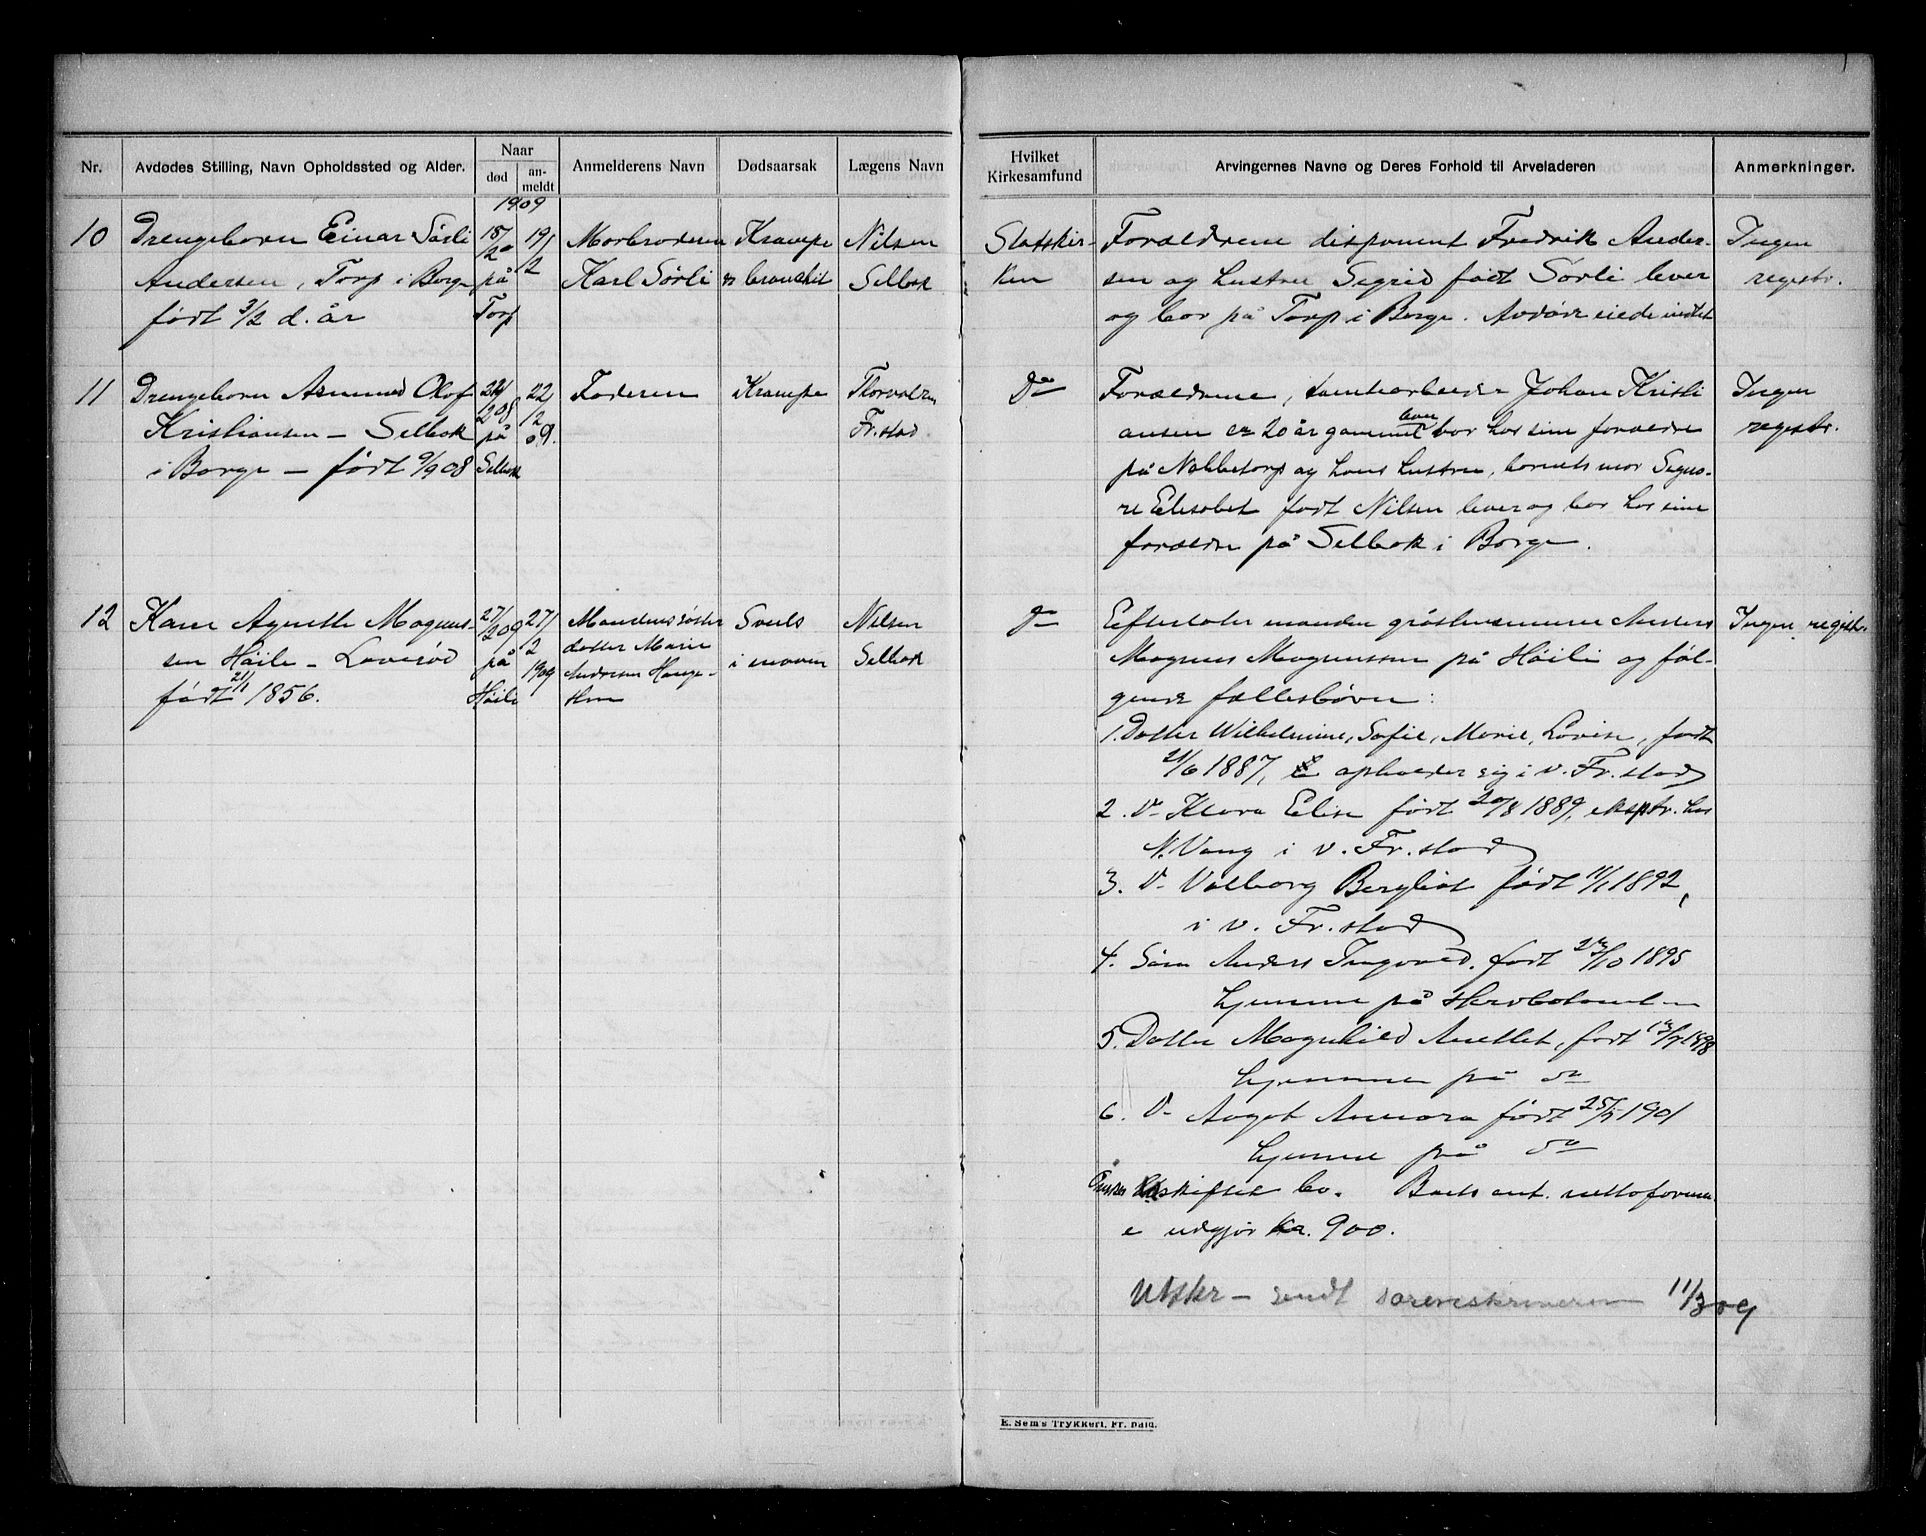 Nr.
Avdødes Stilling, Navn Opholdssted og Alder.
Naar
død
an-
meldt
Anmelderens Navn
Dødsaarsak
Lægens Navn
Hvilket
Kirkesamfund
Arvingernes Navne og Deres Forhold til Arveladeren
Anmerkninger.
1909
10
Drengebarn Einar Sörli
Andersen, Torp i Borge
født 3/2 d. år
på
Torp
19/
2
Morbroderen
Karl Sørli
Krampe
Nilsen
Selbak
Statskir-
ken
Forældrene disponent Fredrik Ander-
sen og hustru Sigrid født Sørli lever
og bor på Torp i Borge. Avdøde eiede intet
Ingen
registr.
11
Drengebarn Asmund Olof
Kristiansen – Selbak
i Borge – født 9/9 08
på
Selbak
22
12
09.
Faderen
Krampe
Fr.stad
Do
Forældrene, Johan Kristi
ansen er 20 år gammel bor hos sine forældre
på Nabbetorp og hans hustru, barnets mor Signo-
re Elisabet født Nilsen lever og bor hos sine
forældre på Selbak i Borge.
Ingen
registr.
12
Karen Agnethe Magnus-
sen Høili – Lavesød
født 21/1 1856.
27/
2 09
på
Høili
27/
2
1909
Mandens søster
datter Marie
Andersen Hauge-
Svuls
i maven
Nilsen
Selbak
Do
Efterlater manden gråstensminer Anders
Magnus Magnussen på Høili og føl-
gende fællesbørn:
1. Datter Wilhelmine, Sofie, Marie, Lovise, født
21/6 1887, opholder sig i v. Fr.stad
2. D– Klara Elise født 20/8 1889, eksptr. hos
N. Vang i v. Fr.stad
3. D– Valborg Bergliot født 11/1 1892,
i v. Fr.stad
4. Søn Anders Ingvald, født /10 1895
hjemme på
5. Datter Magnhild Anethe, født 1898
hjemme på do
6. D– Aagot Annara født 25/7 1901
hjemme på do
Ønsker uskiftet bo. Boets ant. nettoformu
e udgjør kr. 900.
Utskr – sendt sorenskriveren 11/3 09
Ingen registr.
E. Sem's Trykkeri, Fr. hald.